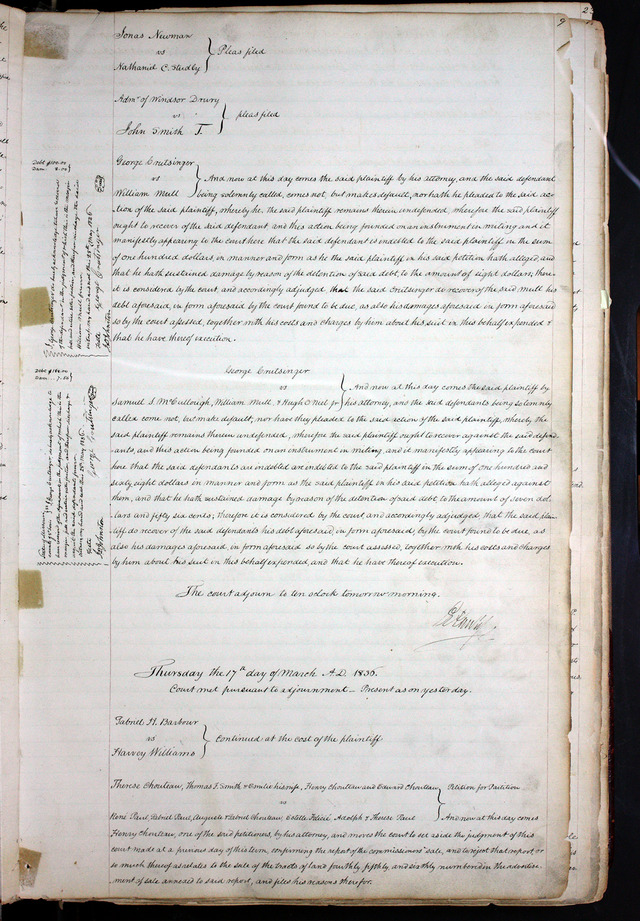 Jonas Newman
vs } Pleas filed
Nathaniel C. Studly
Admr of Windsor Drury
vs } pleas filed
John Smith T.
George Creitsinger
vs } And now at this day comes the said plaintiff by his attorney, and the said defendant
William Mull being solemnly called, comes not, but makes default, nor hath he pleaded to the said ac-
tion of the said plaintiff, whereby he, the said plaintiff remains therein undefended, wherefore the said plaintiff
ought to recover of the said defendant, and this action being founded on an instrument in writing and it
manifestly appearing to the court here that the said defendant is indebted to the said plaintiff in the sum
of one hundred dollars, in manner and form as he the said plaintiff in his said petition hath alleged, and
that he hath sustained damage by reason of the detention of said debt, to the amount of eight dollars; there-
it is considered by the court, and accordingly adjudged that the said Creitsinger do recover of the said Mull his
debt aforesaid, in form aforesaid by the court found to be due, as also his damages aforesaid in form aforesaid
so by the court assessed, together with his costs and charges by him about his suit in this behalf expended &
that he have thereof execution.
Debt $100.00
Dam 8.00
George Creitsinger
vs } And now at this day comes the said plaintiff by
Samuel S. McCullough, William Mull, & Hugh O'Neil Jr his attorney, and the said defendants being solemnly
called come not, but make default, nor have they pleaded to the said action of the said plaintiff, whereby the
said plaintiff remains therein undefended, wherefore the said plaintiff ought to recover against the said defend-
ants, and this action being founded on an instrument in writing, and it manifestly appearing to the court
here that the said defendants are indebted are indebted to the said plaintiff in the sum of one hundred and
sixty eight dollars in manner and form as the said plaintiff in his said petition hath alleged against
them, and that he hath sustained damage by reason of the detention of said debt to the amount of seven dol-
lars and fifty six cents; therefore it is considered by the court and accordingly adjudged, that the said plain-
tiff do recover of the said defendants his debt aforesaid in form aforesaid, by the court found to be due, as
also his damages aforesaid, in form aforesaid so by the court assessed, together with his costs and charges
by him about his suit in this behalf expended, and that he have thereof execution.
The court adjourn to ten o'clock tomorrow morning.
Thursday the 17th day of March A.D. 1836.
Court met pursuant to adjournment – Present as on yesterday.
Gabriel H. Barbour
vs } Continued at the cost of the plaintiff
Harvey Williams
Therese Chouteau, Thomas F. Smith & Emilie his wife, Henry Chouteau and Edward Chouteau } Petition for Partition
vs
René Paul, Gabriel Paul, Auguste & Gabriel Chouteau, Estelle, Felicié Adolph & Therese Paul } And now at this day comes
Henry Chouteau, one of the said petitioners, by his attorney, and moves the court to set aside the judgment of this
court made at a previous day of this term, confirming the report of the commissioners' sale, and to reject that report, or
so much thereof as relates to the sale of the tracts of land fourthly, fifthly, and sixthly numbered in the advertise-
ment of sale annexed to said report, and files his reasons therefor.